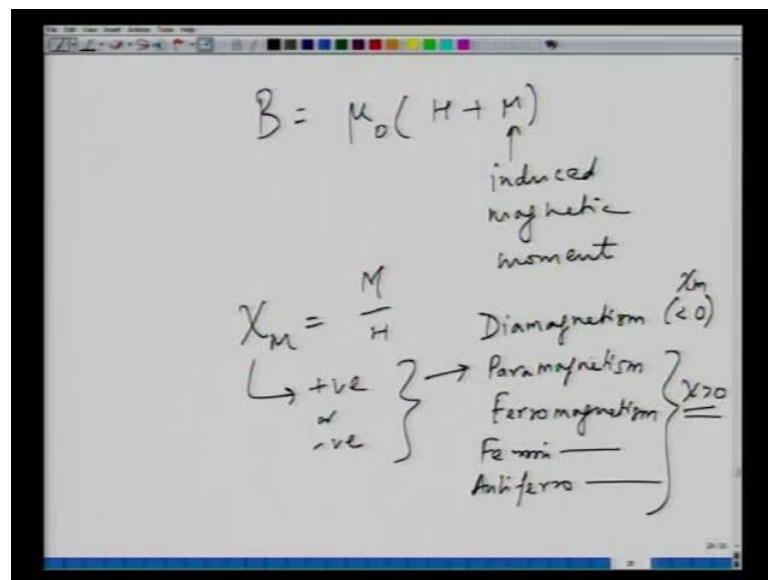 B = μ₀ ( H + M )
↑
induced
magnetic
moment
χₘ = M / H
↳ +ve
or
-ve
Diamagnetism χₘ (<0)
→ Paramagnetism
Ferromagnetism
Ferri ——
Antiferro ——
χ>0